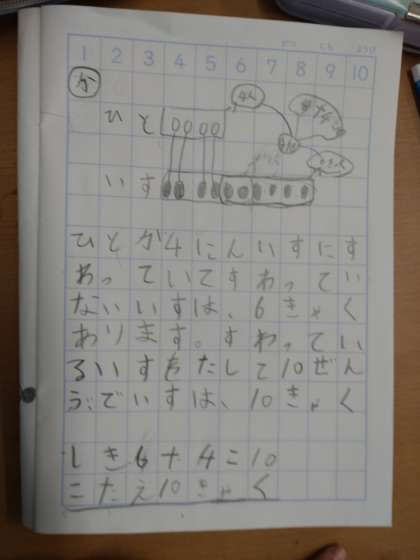 1 2 3 4 5 6 7 8 9 10
か
4人
ひと
いす
ひとが4にんいすにす
わっていてすわってい
ないいすは、6きゃく
あります。すわってい
るいすをたして10ぜん
ぶでいすは、10きゃく
しき6+4=10
こたえ10きゃく